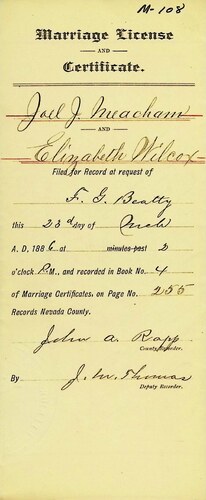 M-108
Marriage License
AND
Certificate.
Joel J. Meacham
AND
Elizabeth Wilcox
Filed for Record at request of
F. G. Beatty
this 23d day of Mch
A. D. 1886 at minutes past 2
o'clock P.M., and recorded in Book No. 4
of Marriage Certificates, on Page No. 255
Records Nevada County.
John A. Rapp
County Recorder.
By J. M. Thomas
Deputy Recorder.